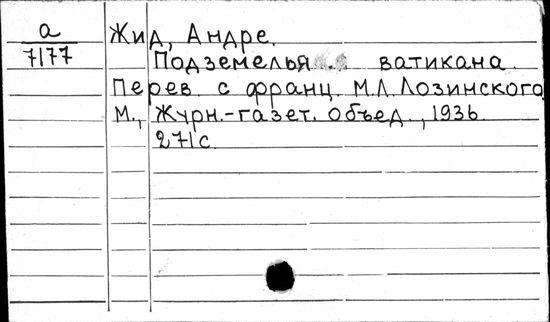 а
7177
Жид, Андре.
Подземелья ватикана.
Перев. с франц. М.Л. Лозинского
М., Журн.-газет. объед., 1936.
271 с.